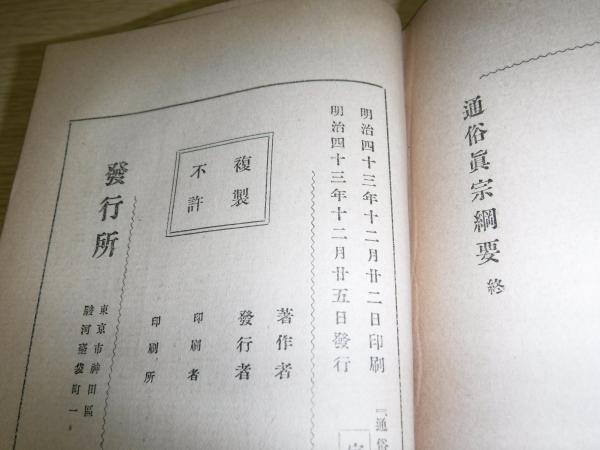 通俗眞宗綱要 終
明治四十三年十二月廿二日印刷
明治四十三年十二月廿五日發行
「通俗
著作者
發行者
印刷者
印刷所
複製
不許
發行所
東京市神田區
駿河臺袋町一